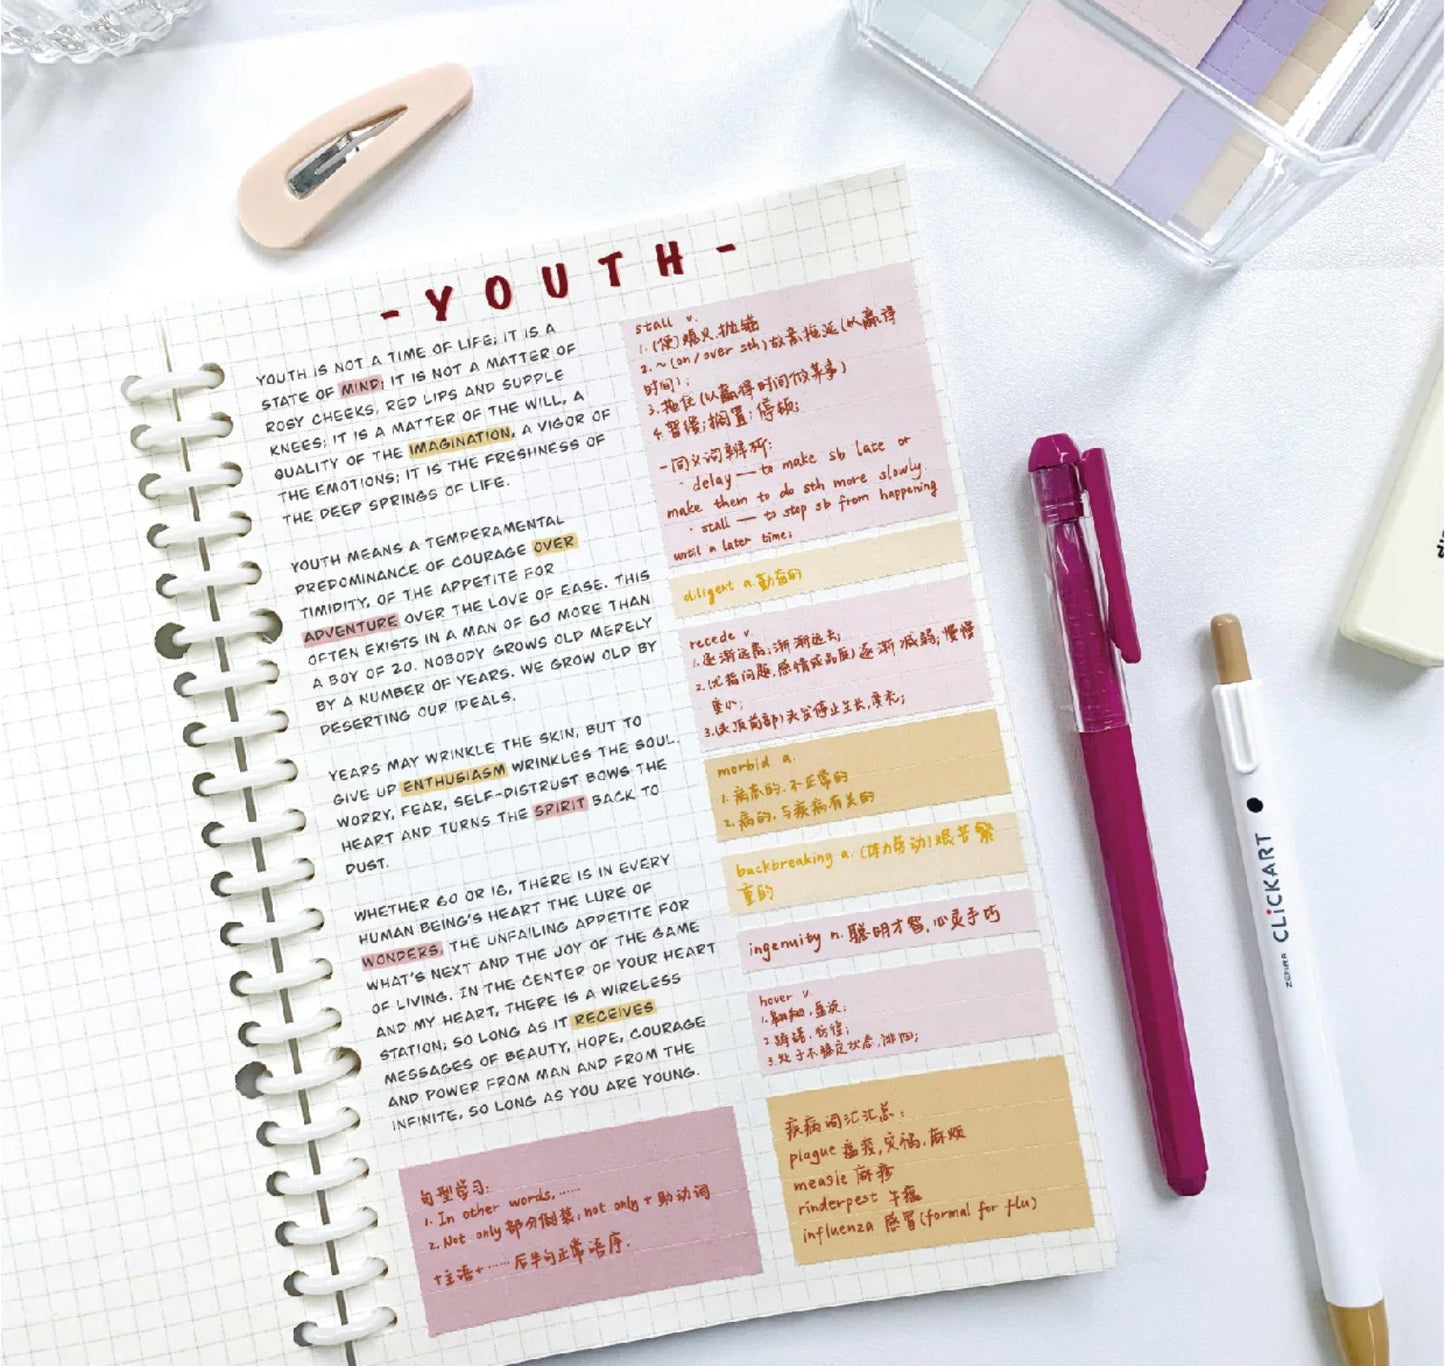 - YOUTH -
YOUTH IS NOT A TIME OF LIFE; IT IS A
STATE OF MIND; IT IS NOT A MATTER OF
ROSY CHEEKS, RED LIPS AND SUPPLE
KNEES; IT IS A MATTER OF THE WILL, A
QUALITY OF THE IMAGINATION, A VIGOR OF
THE EMOTIONS; IT IS THE FRESHNESS OF
THE DEEP SPRINGS OF LIFE.
YOUTH MEANS A TEMPERAMENTAL
PREDOMINANCE OF COURAGE OVER
TIMIDITY, OF THE APPETITE FOR
ADVENTURE OVER THE LOVE OF EASE. THIS
OFTEN EXISTS IN A MAN OF 60 MORE THAN
A BOY OF 20. NOBODY GROWS OLD MERELY
BY A NUMBER OF YEARS. WE GROW OLD BY
DESERTING OUR IDEALS.
YEARS MAY WRINKLE THE SKIN, BUT TO
GIVE UP ENTHUSIASM WRINKLES THE SOUL.
WORRY, FEAR, SELF-DISTRUST BOWS THE
HEART AND TURNS THE SPIRIT BACK TO
DUST.
WHETHER 60 OR 16, THERE IS IN EVERY
HUMAN BEING'S HEART THE LURE OF
WONDERS, THE UNFAILING APPETITE FOR
WHAT'S NEXT AND THE JOY OF THE GAME
OF LIVING. IN THE CENTER OF YOUR HEART
AND MY HEART, THERE IS A WIRELESS
STATION; SO LONG AS IT RECEIVES
MESSAGES OF BEAUTY, HOPE, COURAGE
AND POWER FROM MAN AND FROM THE
INFINITE, SO LONG AS YOU ARE YOUNG.
句型学习:
1. In other words, ……
2. Not only 部分倒装; not only + 助动词
+主语+……后半句正常语序.
stall v.
1. (使)熄火,抛锚
2. ~ (on / over sth) 故意拖延 (以赢得
时间);
3. 拖住 (以赢得时间做某事)
4. 暂缓; 搁置; 停顿;
- 同义词辨析:
· delay — to make sb late or
make them to do sth more slowly.
· stall — to stop sb from happening
until a later time;
diligent a. 勤奋的
recede v.
1. 逐渐远离; 渐渐远去;
2. (尤指问题,感情或品质) 逐渐减弱; 慢慢
变小;
3. (头顶前部) 头发停止生长,变秃;
morbid a.
1. 病态的,不正常的
2. 病的,与疾病有关的
backbreaking a. (体力劳动) 艰苦繁
重的
ingenuity n. 聪明才智,心灵手巧
hover v.
1. 翱翔,盘旋;
2. 踌躇,彷徨;
3. 处于不稳定状态,徘徊;
疾病词汇汇总:
plague 瘟疫,灾祸,麻烦
measle 麻疹
rinderpest 牛瘟
influenza 感冒 (formal for flu)
ZEBRA CLiCKART